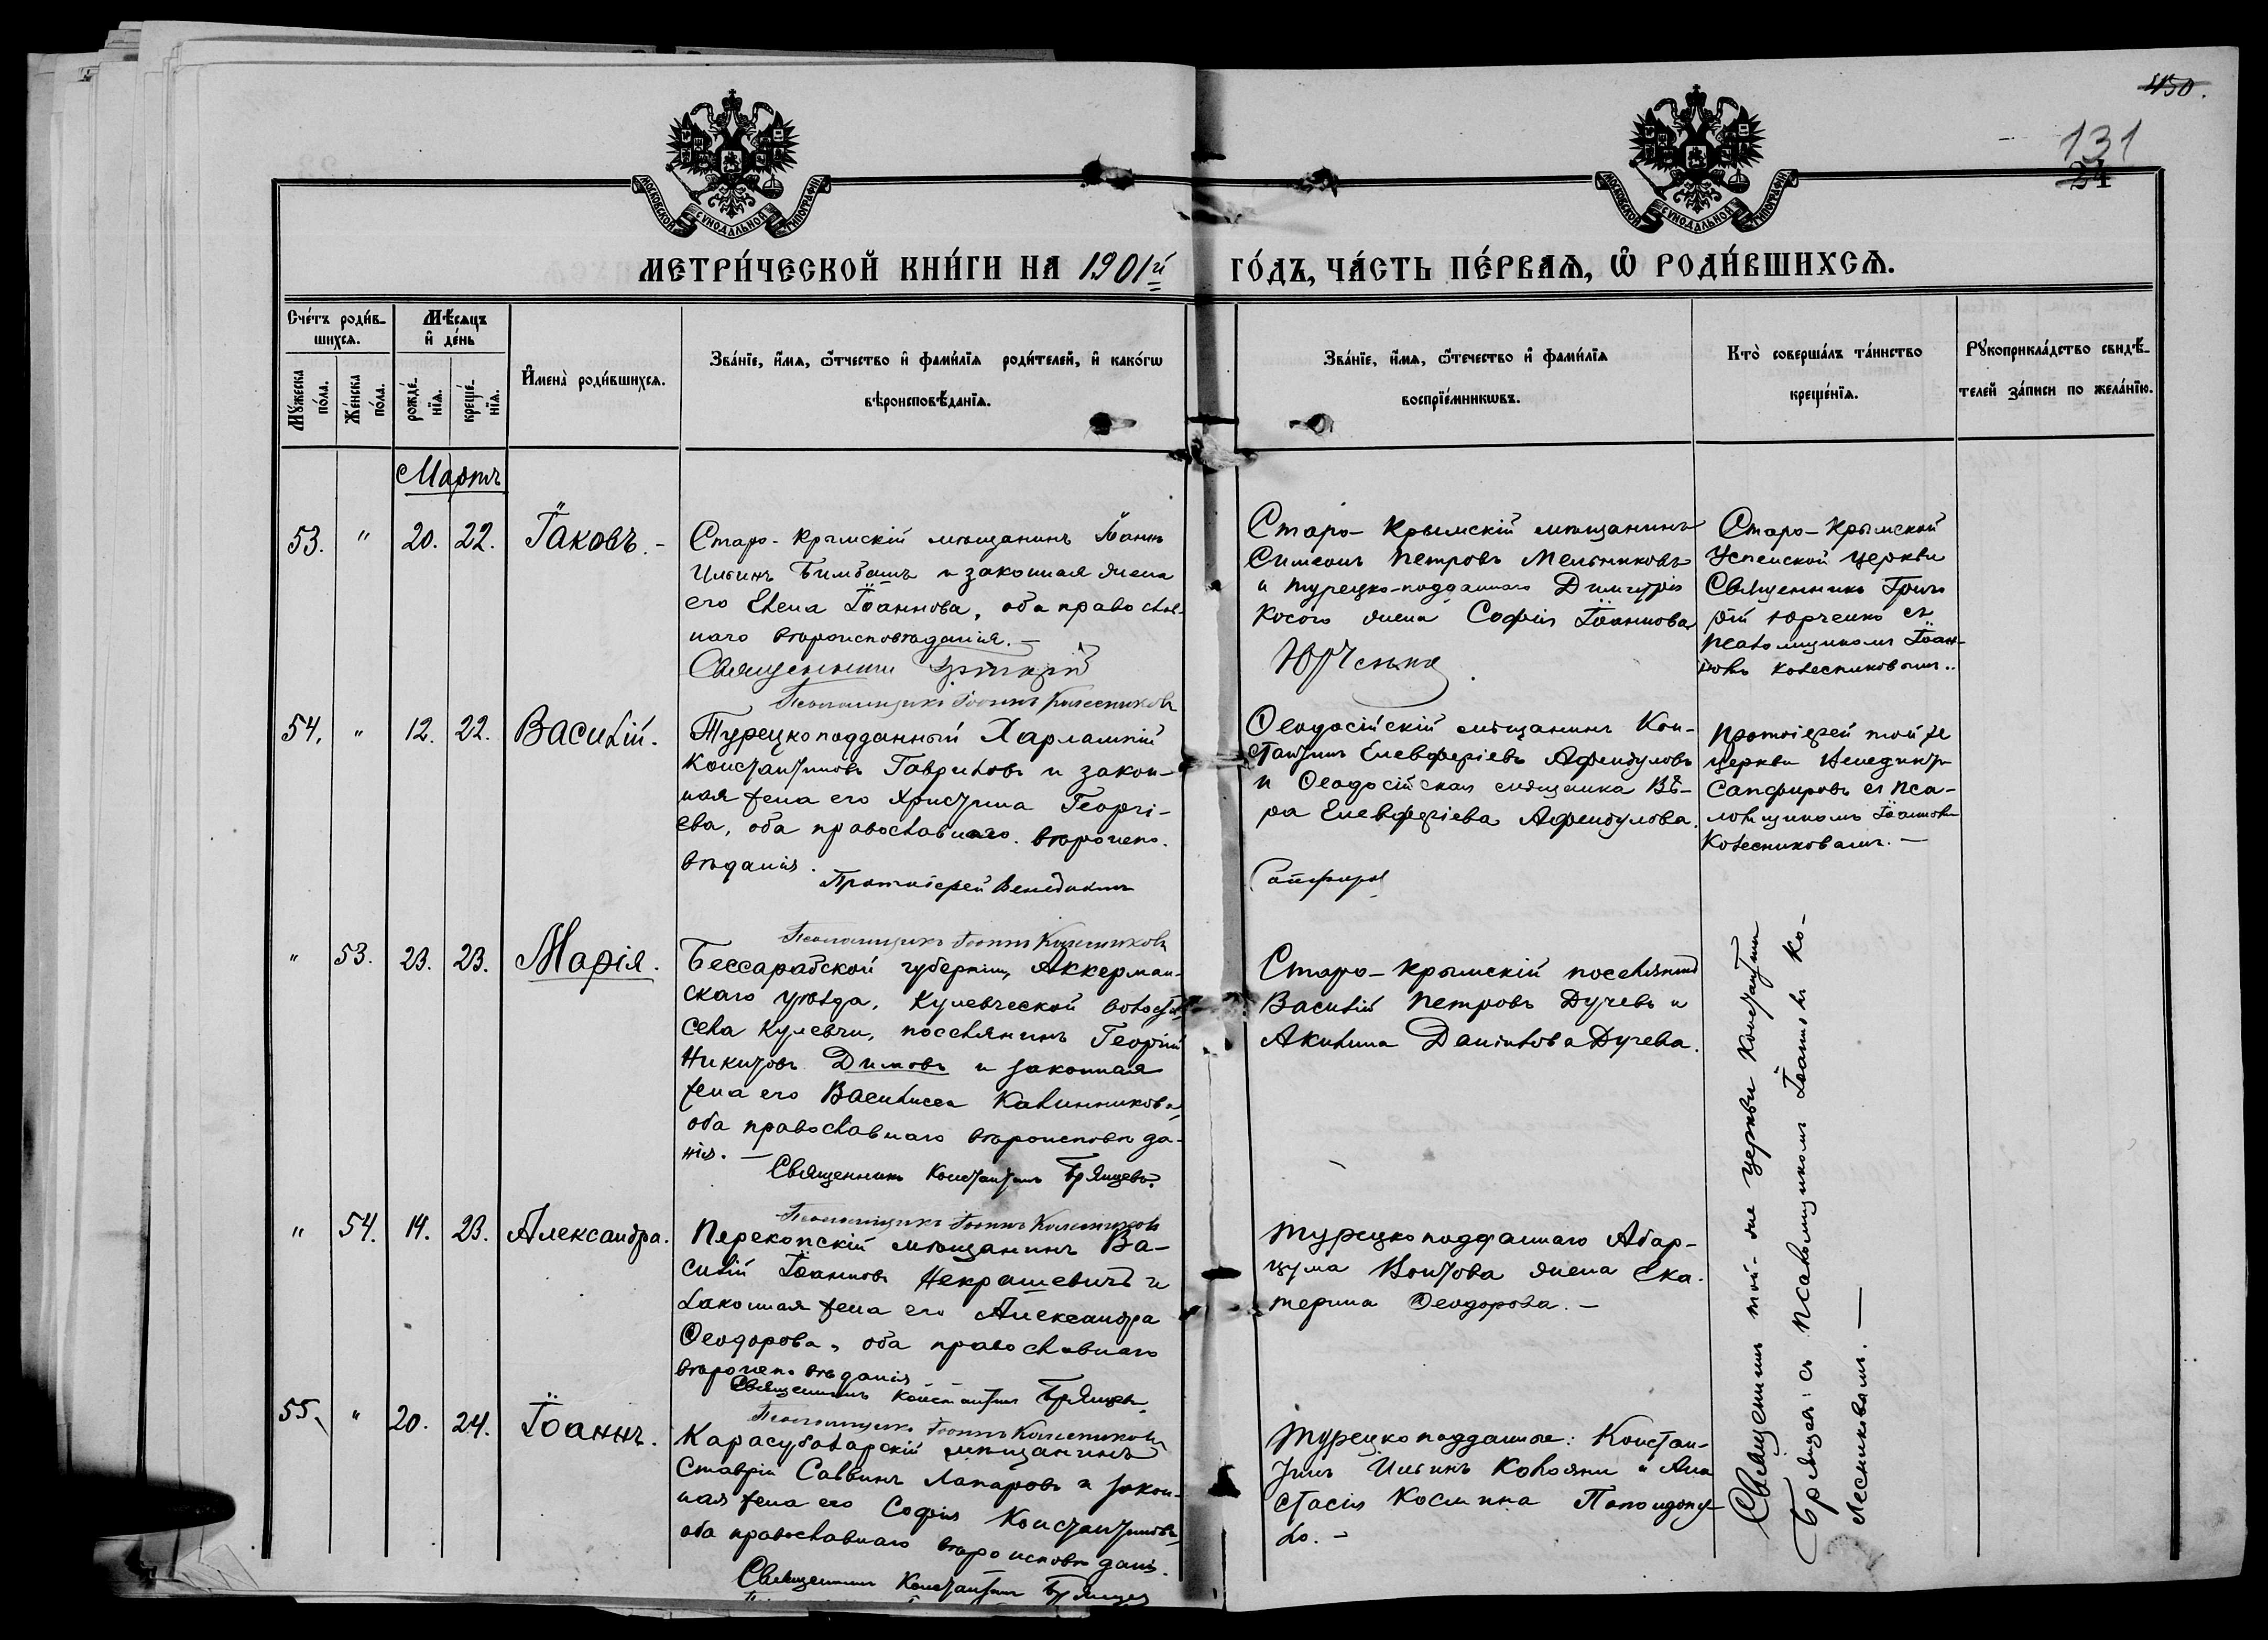 450.
131
24
МОСКОВСКОЙ СѴНОДАЛЬНОЙ ТИПОГРАФІИ
МОСКОВСКОЙ СѴНОДАЛЬНОЙ ТИПОГРАФІИ
МЕТРИ́ЧЕСКОЙ КНИ́ГИ НА 1901й ГО́ДЪ, ЧА́СТЬ ПЕ́РВАѦ, Ѡ҆ РОДИ́ВШИХСѦ.
Сче́тъ роди́в-
шихсѧ.
Мꙋ́жеска
по́ла.
Же́нска
по́ла.
Мѣ́сѧцъ
и҆ де́нь
рожде́-
нїѧ.
креще́-
нїѧ.
И҆мена̀ роди́вшихсѧ.
Зва́нїе, и҆́мѧ, ѻ҆́тчество и҆ фами́лїѧ роди́телей, и҆ како́гѡ
вѣроисповѣ́данїѧ.
Зва́нїе, и҆́мѧ, ѻ҆те́чество и҆ фами́лїѧ
воспрїе́мникѡвъ.
Кто̀ соверша́лъ та́инство
креще́нїѧ.
Рꙋкоприкла́дство свидѣ́-
телей за́писи по жела́нїю.
Мартъ
53. " 20. 22. Іаковъ. -
Старо-Крымскій мѣщанинъ Іоаннъ
Ильинъ Бимбашъ и законная жена
его Елена Іоаннова, оба православ-
наго вѣроисповѣданія. -
Священникъ Григорій
Псаломщикъ Іоаннъ Колесниковъ
Старо-Крымскій мѣщанинъ
Симеонъ Петровъ Мельниковъ
и турецко-подданнаго Димитрія
Косого жена Софія Іоаннова
Юрченко
Старо-Крымской
Успенской церкви
Священникъ Григо
рій Юрченко съ
псаломщикомъ Іоан-
номъ Колесниковымъ..
54. " 12. 22. Василій.
Турецкоподданный Харлампій
Константиновъ Гавриловъ и закон-
ная жена его Христина Георгі-
ева, оба православнаго вѣроиспо-
вѣданія.
Протоіерей Венедиктъ
Псаломщикъ Іоаннъ Колесниковъ
Ѳеодосійскій мѣщанинъ Кон-
стантинъ Елевферіевъ Афендуловъ
и Ѳеодосійская мѣщанка Вѣ-
ра Елевферіева Афендулова.
Сапфировъ
Протоіерей той же
церкви Венедиктъ
Сапфировъ съ пса-
ломщикомъ Іоанномъ
Колесниковымъ. -
" 53. 23. 23. Марія.
Бессарабской губерніи, Аккерман-
скаго уѣзда, Кулевческой волости
села Кулевчи, поселянинъ Георгій
Никитовъ Димовъ и законная
жена его Василисса Калинникова,
оба православнаго вѣроисповѣда-
нія. -
Священникъ Константинъ Брянцевъ.
Псаломщикъ Іоаннъ Колесниковъ
Старо-Крымскій поселянинъ
Василій Петровъ Дучевъ и
Акилина Даніилова Дучева.
Священникъ той-же церкви Константинъ
Брянцевъ съ псаломщикомъ Іоанномъ Ко-
лесниковымъ. -
" 54. 14. 23. Александра.
Перекопскій мѣщанинъ Ва-
силій Іоанновъ Некрашевичъ и
законная жена его Александра
Ѳеодорова, оба православнаго
вѣроисповѣданія
Священникъ Константинъ Брянцевъ
Псаломщикъ Іоаннъ Колесниковъ
Турецкоподданнаго
жена Ека-
терина Ѳеодорова. -
55. " 20. 24. Іоаннъ.
Карасубазарскій мѣщанинъ
Ставрій Саввинъ Лапаровъ и закон-
ная жена его Софія Константинова,
оба православнаго вѣроисповѣданія.
Священникъ Константинъ Брянцевъ
Турецкоподданные: Констан-
тинъ Ильинъ и Ана
стасія Космина Попандопу-
ло. -